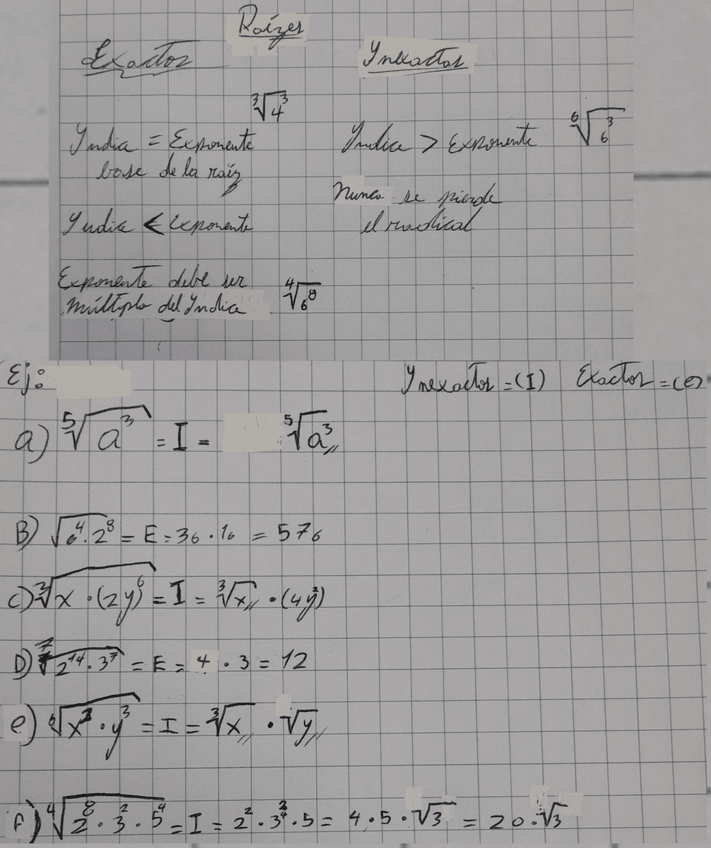 Raízes
Exactos Ynexactos
∛4³
Yndia = Exponente
base de la raíz
Yndia > Exponente ⁶√6³
Nunca se pierde
el radical
Yndia < Exponente
Exponente debe ser
múltiplo del Yndia ⁴√6⁸
Ej:
Ynexactos = (I) Exactos = (e)
a) ⁵√a³ = I = ⁵√a³
B) √6⁴·2⁸ = E = 36 · 16 = 576
c) ³√x · (2y)⁶ = I = ³√x · (4y²)
D) ⁷√2¹⁴·3⁷ = E = 4 · 3 = 12
e) ⁶√x² · y³ = I = ³√x · √y
f) ⁴√2⁸ · 3² · 5⁴ = I = 2² · 3^(2/4) · 5 = 4 · 5 · √3 = 20 · √3